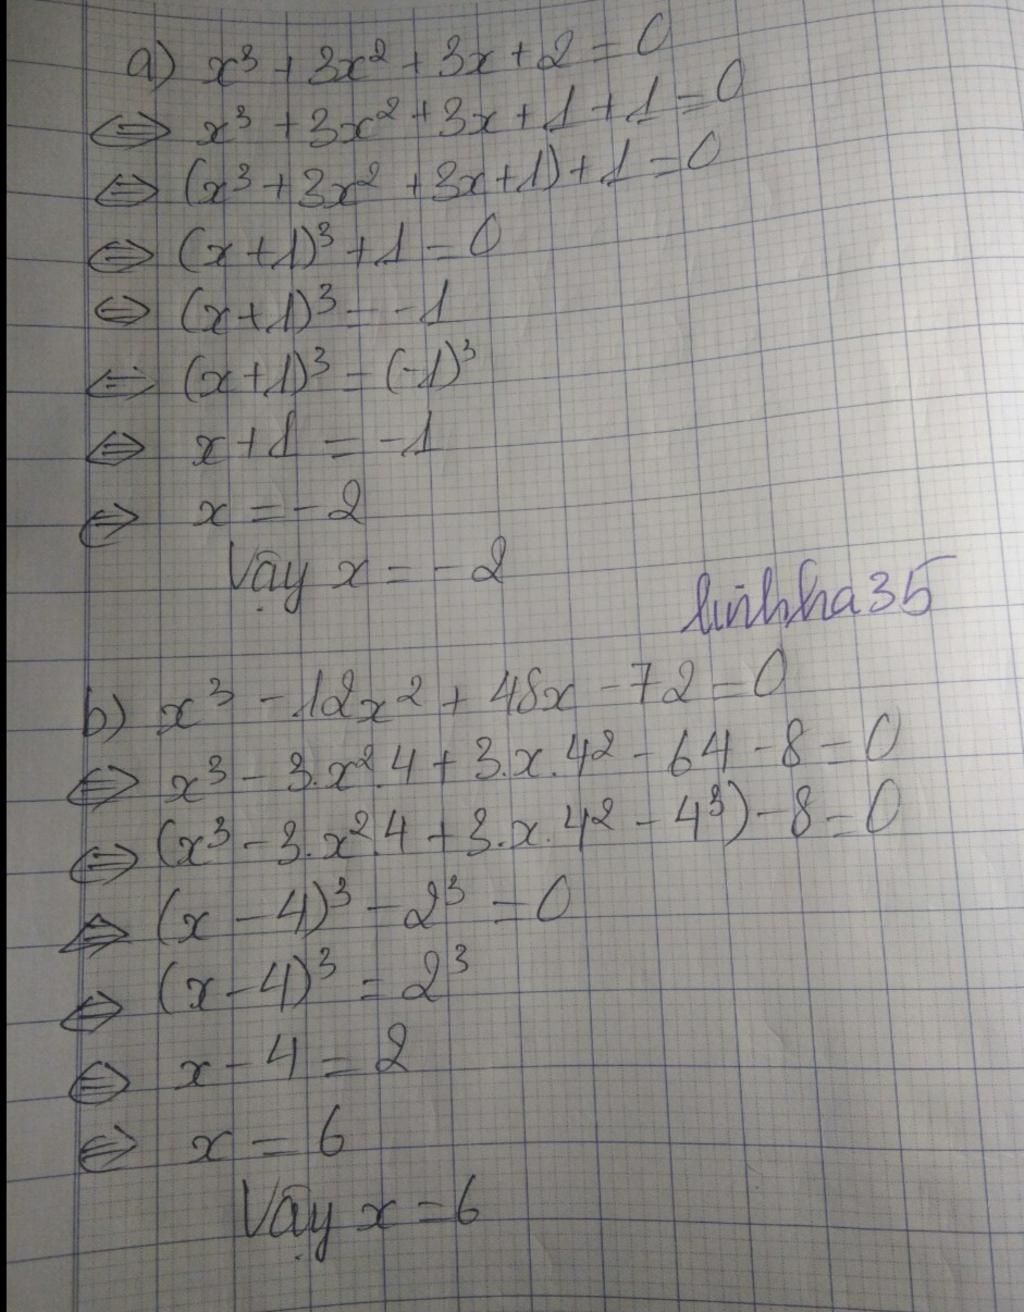 a) x³ + 3x² + 3x + 2 = 0
⇔ x³ + 3x² + 3x + 1 + 1 = 0
⇔ (x³ + 3x² + 3x + 1) + 1 = 0
⇔ (x + 1)³ + 1 = 0
⇔ (x + 1)³ = -1
⇔ (x + 1)³ = (-1)³
⇔ x + 1 = -1
⇔ x = -2
Vậy x = -2
linhha35
b) x³ - 12x² + 48x - 72 = 0
⇔ x³ - 3.x².4 + 3.x.4² - 64 - 8 = 0
⇔ (x³ - 3.x².4 + 3.x.4² - 4³) - 8 = 0
⇔ (x - 4)³ - 2³ = 0
⇔ (x - 4)³ = 2³
⇔ x - 4 = 2
⇔ x = 6
Vậy x = 6